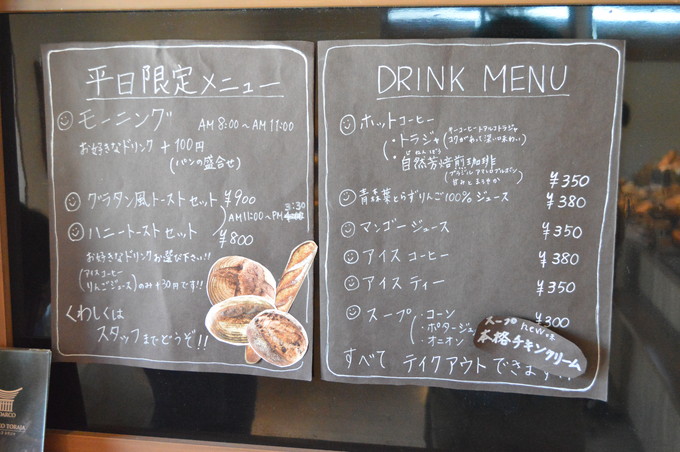 平日限定メニュー
モーニング AM 8:00~AM 11:00
お好きなドリンク +100円
(パンの盛合せ)
グラタン風トーストセット ¥900
AM 11:00~PM 3:30
ハニートーストセット ¥800
お好きなドリンクお選び下さい!!
(アイスコーヒー
りんごジュース)のみ+30円です!!
くわしくは
スタッフまでどうぞ!!
DRINK MENU
ホットコーヒー
・トラジャ (キーコーヒートアルコトラジャ
コクがあって深い味わい)
・自然芳焙煎珈琲
(ブラジル
甘みとまろやか) ¥350
青森葉とらずりんご100%ジュース ¥380
マンゴージュース ¥350
アイスコーヒー ¥380
アイスティー ¥350
スープ ・コーン ¥300
・ポタージュ
・オニオン
スープ new
本格チキンクリーム
すべて テイクアウト できます!!